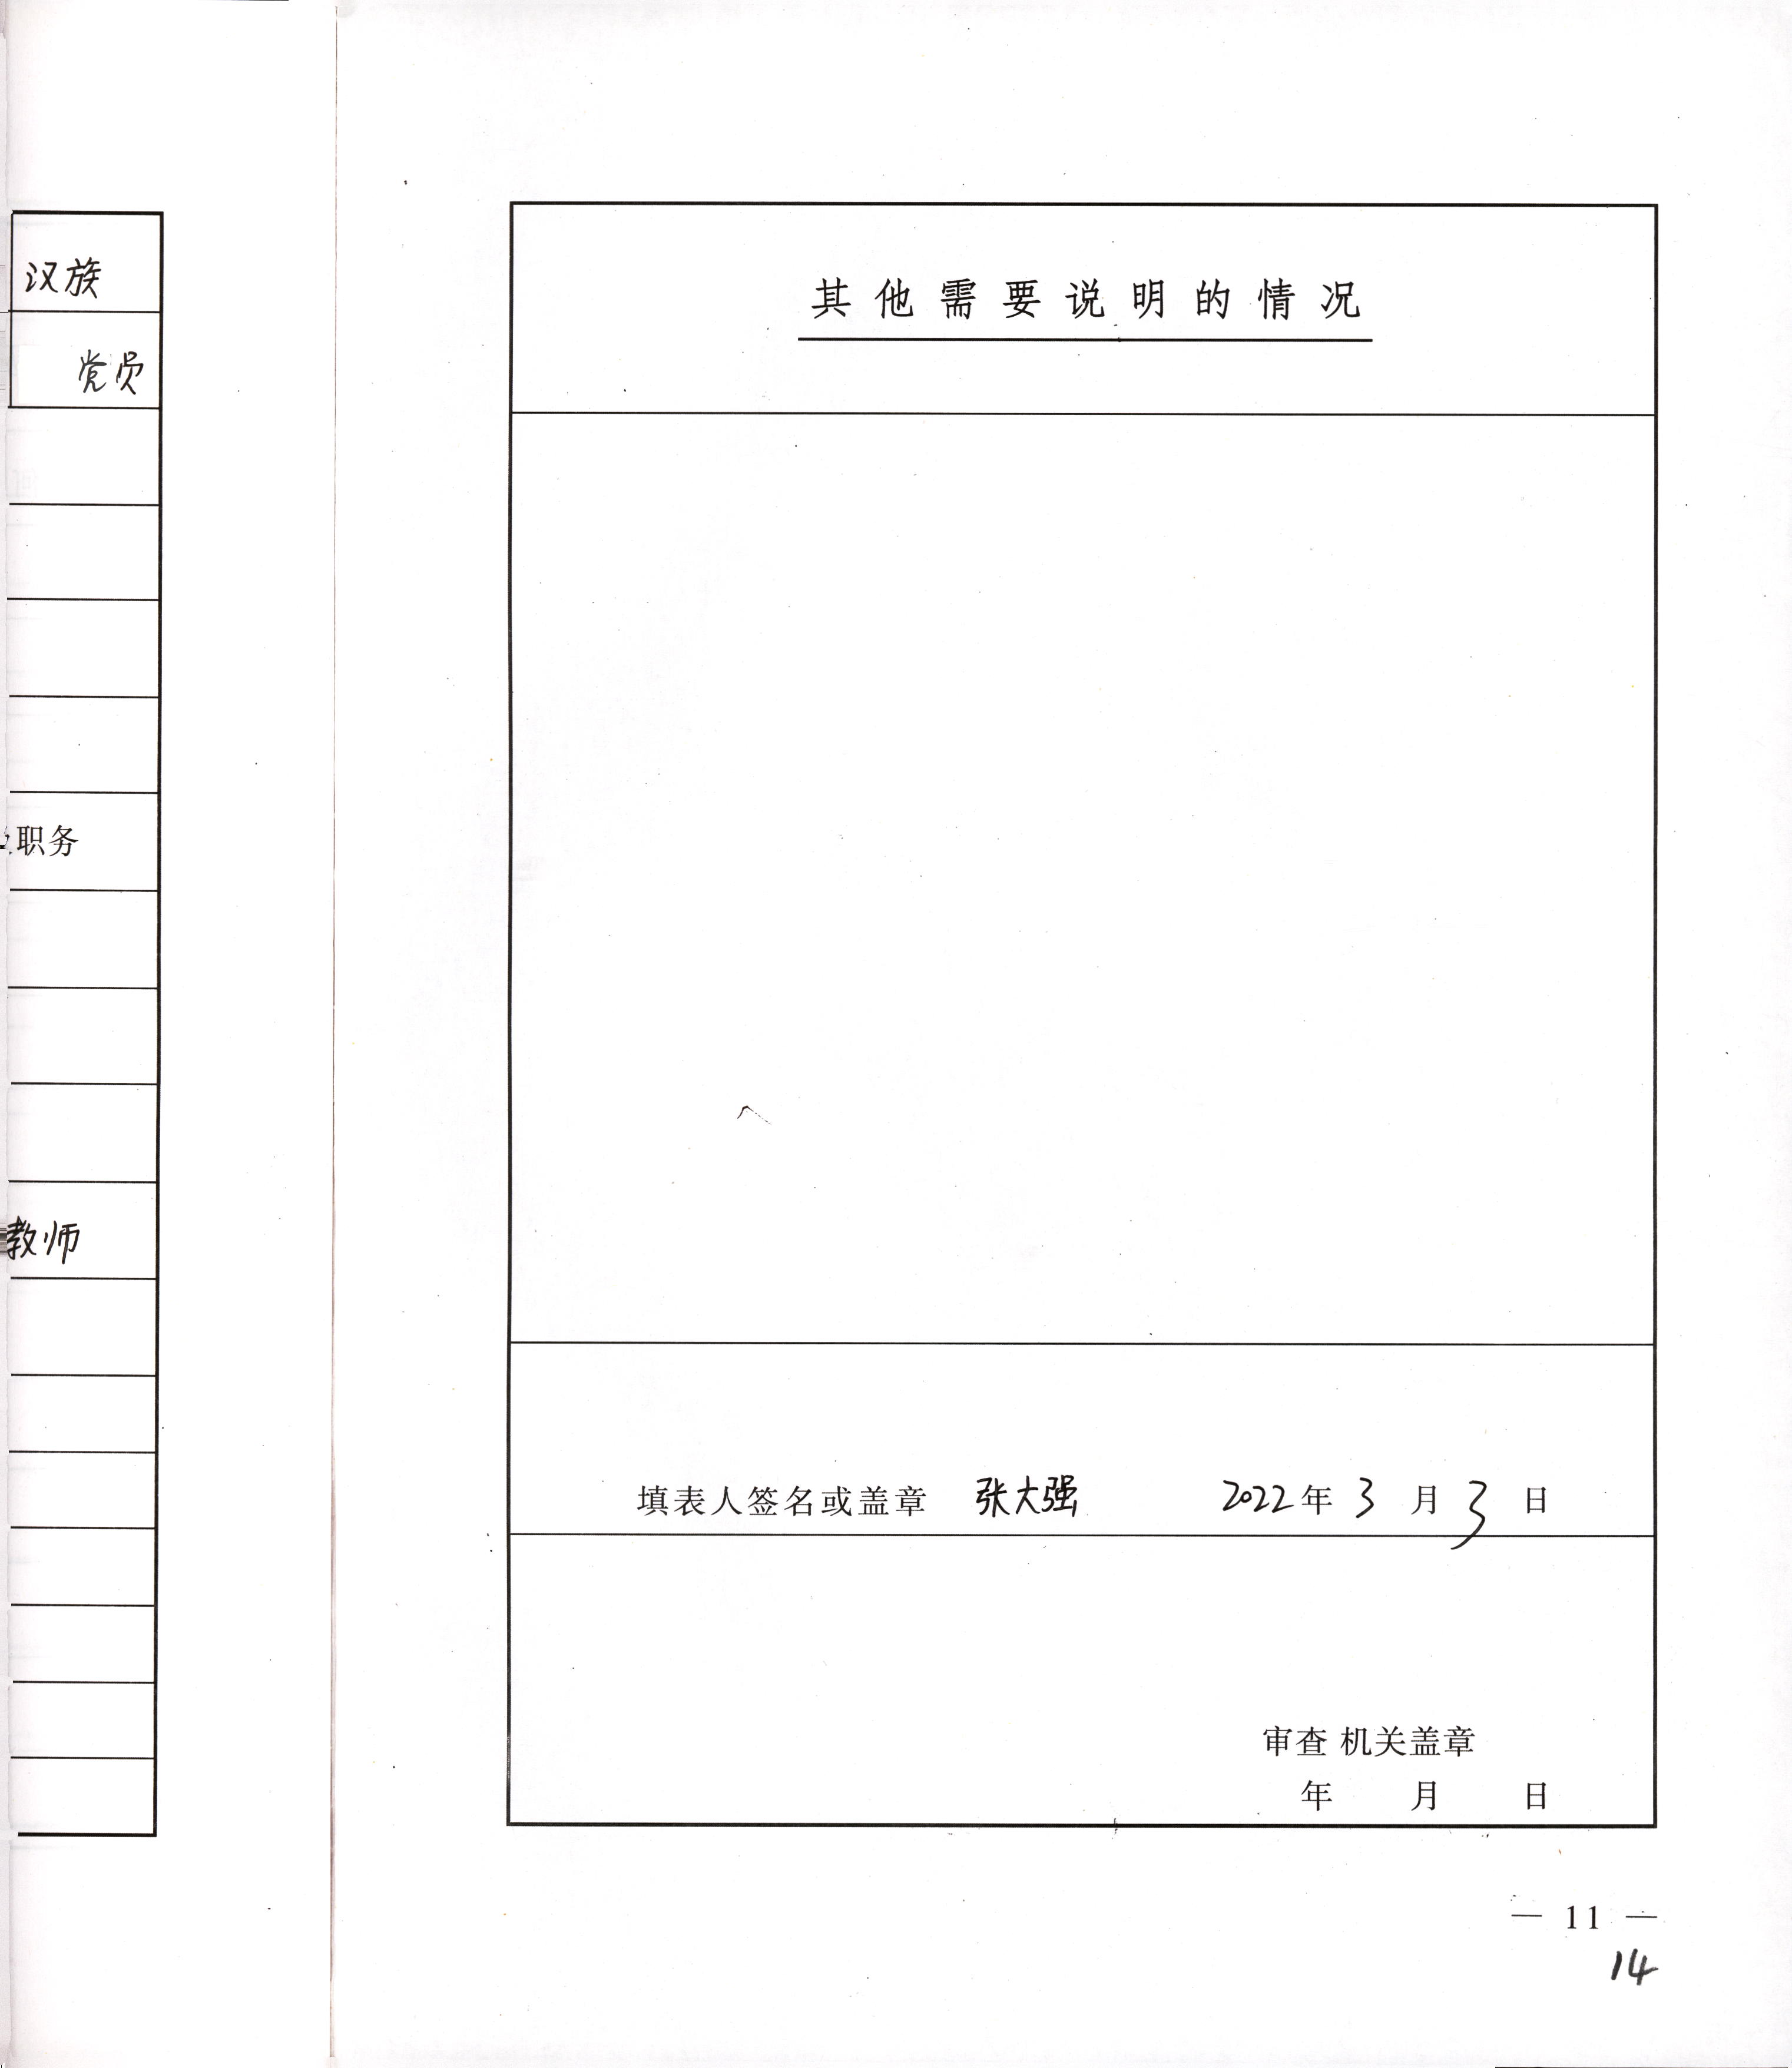 汉族
党员
职务
教师
其他需要说明的情况
填表人签名或盖章 张大强 2022年3月3日
审查机关盖章
年 月 日
— 11 —
14